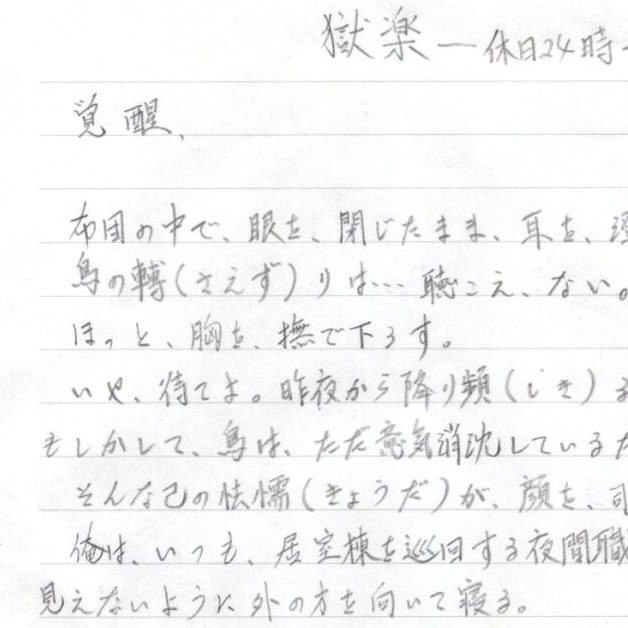 獄楽 ― 休日24時
覚醒、
布団の中で、眼を、閉じたまま、耳を、
鳥の轉(さえず)りは… 聴こえ、ない。
ほっと、胸を、撫で下ろす。
いや、待てよ。昨夜から降り頻(しき)る
もしかして、鳥は、ただ意気消沈しているだ
そんな己の怯懦(きょうだ)が、顔を、
俺は、いつも、居室棟を巡回する夜間職
見えないように外の方を向いて寝る。